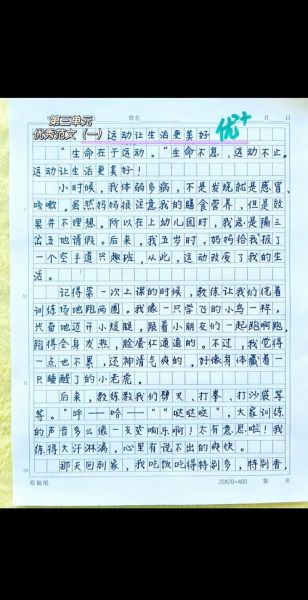 姓名 月 日
第三单元
优秀范文(一) 运动让生活更美好 优+
“生命在于运动。”生命不息,运动不止。
运动让生活更美好!
小时候,我体弱多病,不是发烧就是感冒、
咳嗽。虽然妈妈很注意我的膳食营养,但是效
果并不理想。所以在上幼儿园时,我总是隔三
岔五地请假。后来,我五岁时,妈妈给我报了
一个空手道兴趣班,从此,运动改变了我的生
活。
记得第一次上课的时候,教练让我们绕着
训练场地跑两圈。我像一只学飞的小鸟一样,
兴奋地迈开小短腿,跟着小朋友们一起跑啊跑,
跑得全身发热,脸蛋红通通的。不过,我觉得
一点也不累,还神清气爽的,好像身体藏着一
只睡醒了的小老虎。
后来,教练教我们劈叉、打拳、打沙袋等
等。“呼——哈——”“哒哒哒”,大家训练
的声音多么像一支交响乐啊!太有意思啦!我
练得大汗淋漓,心里有说不出的爽快。
那天回到家,我吃饭吃得特别多,特别香,
原稿纸 20X20=400 第 页